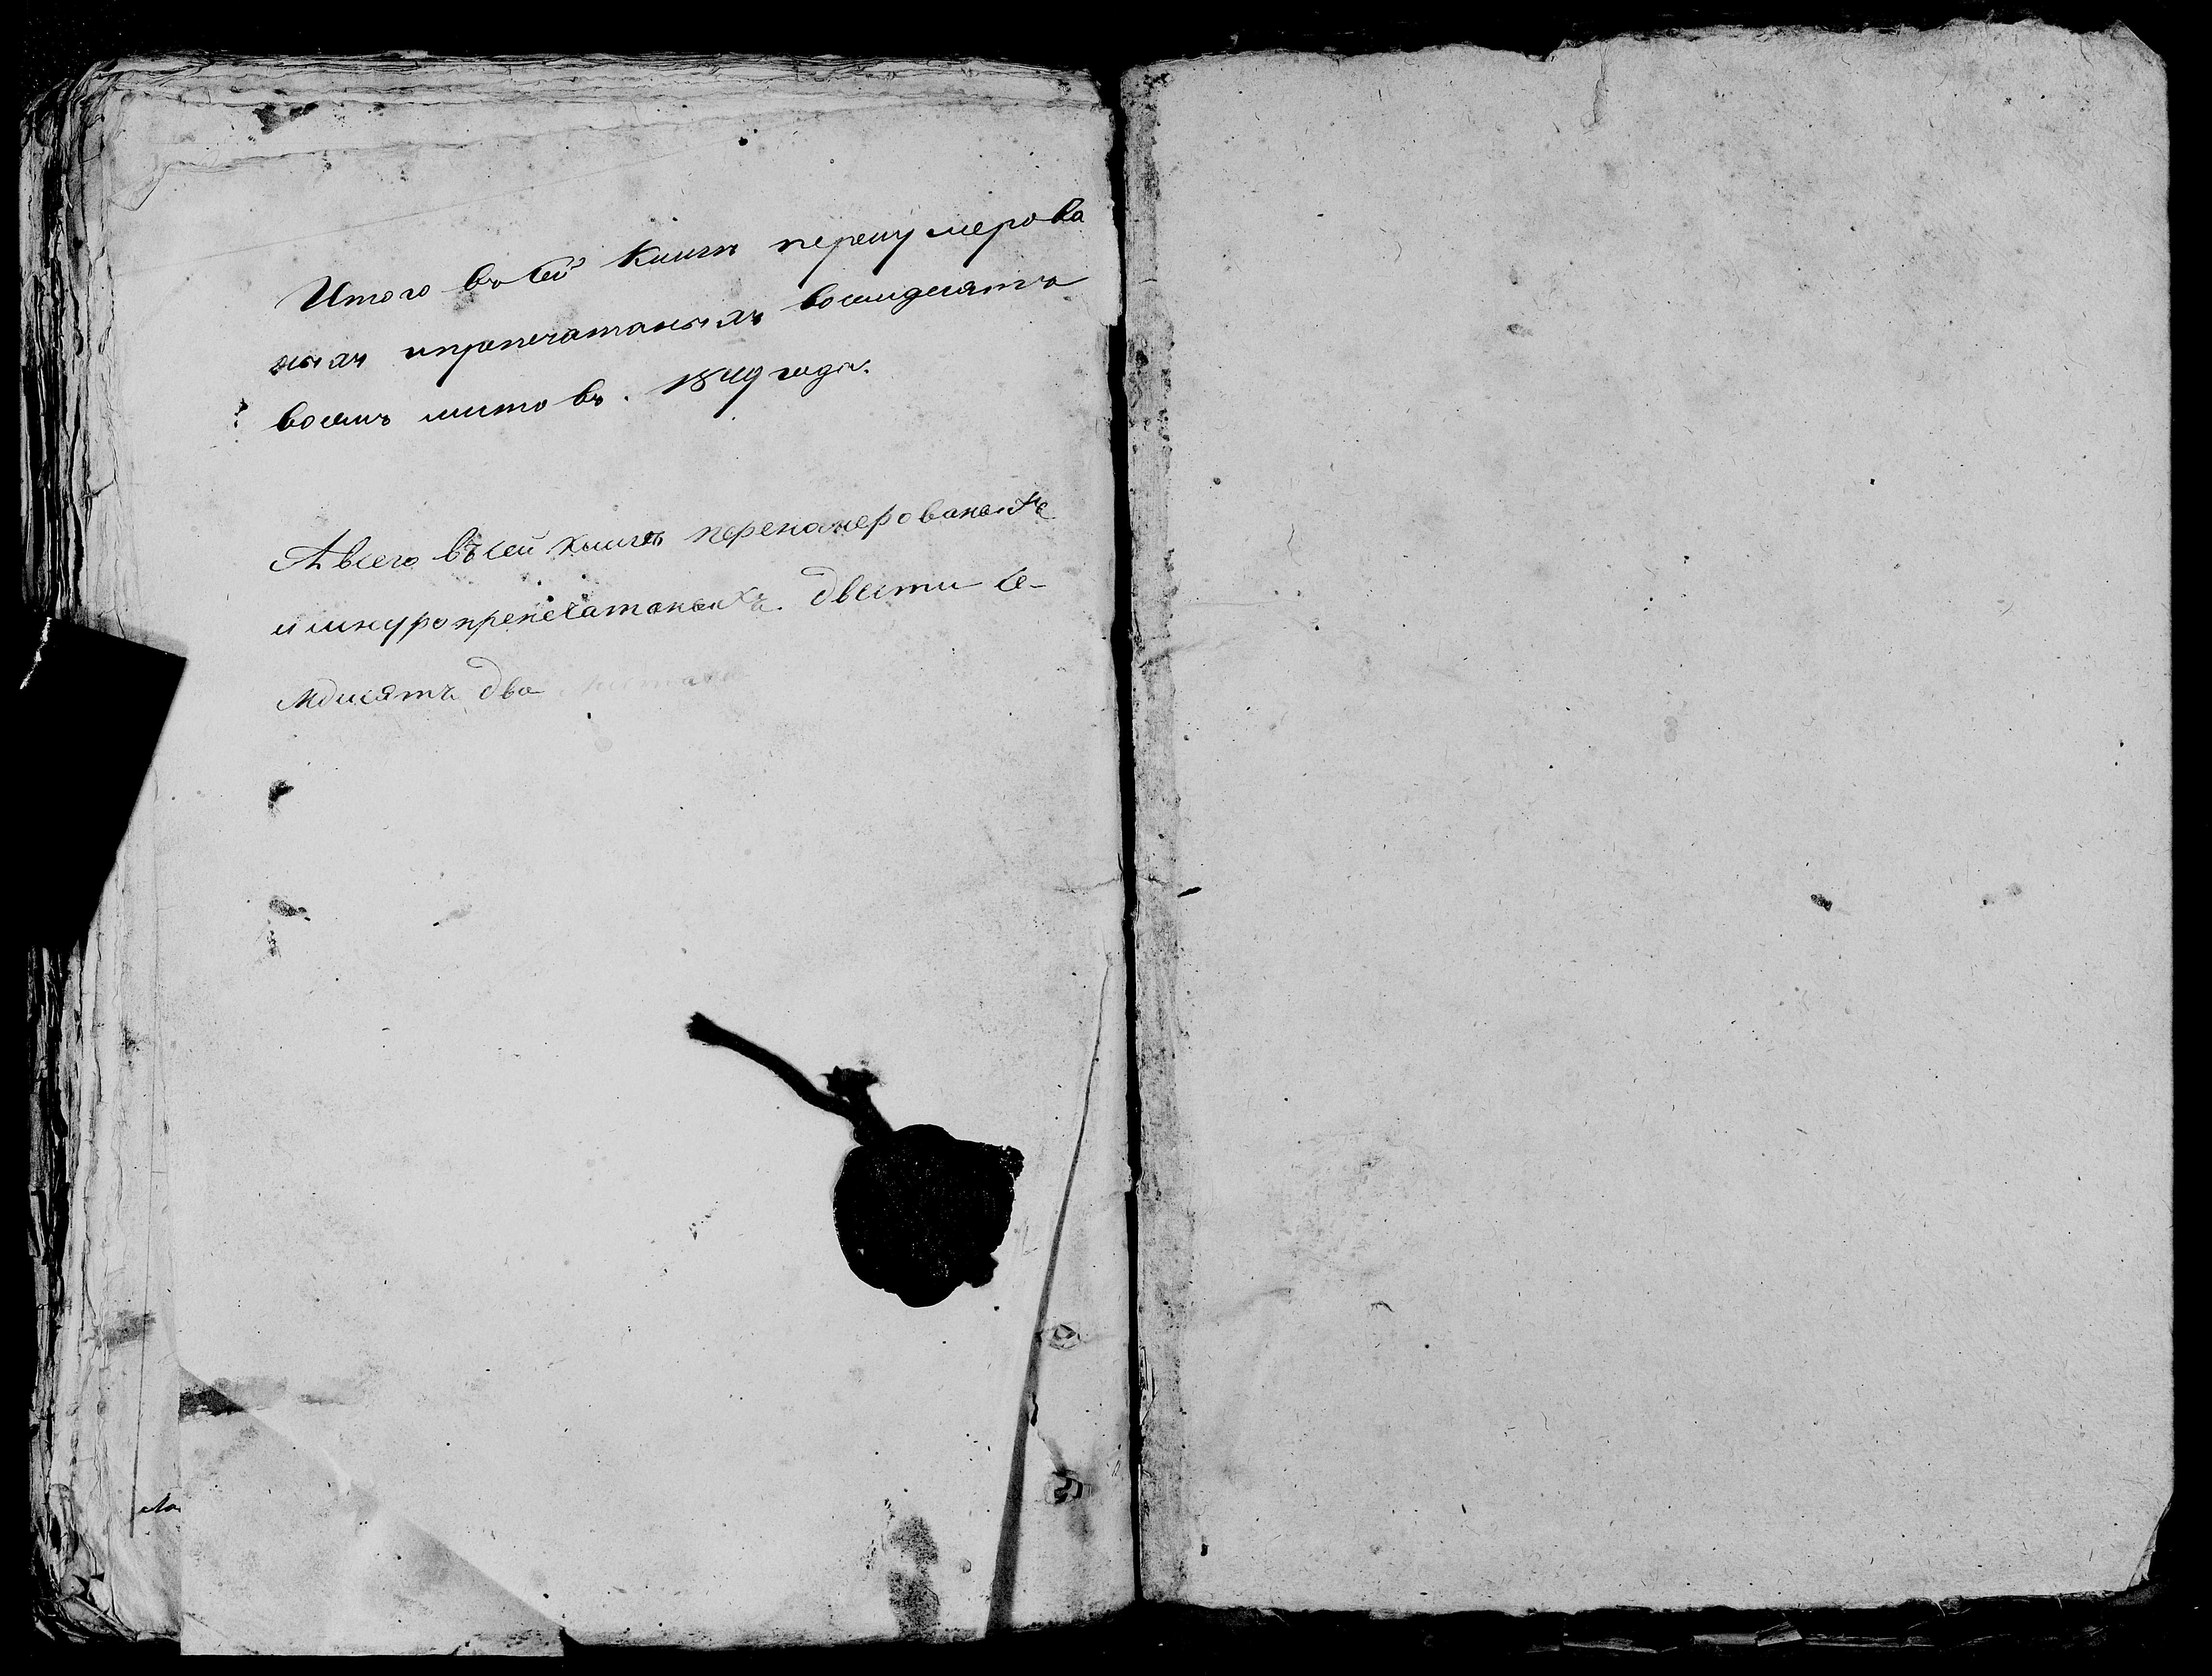 Итого въ сей Книги перенумерова
ныхъ ипропечатаныхъ восемдесятъ
восемъ листовъ. 1849 года.
А всего въ сей книги перенамерованыхъ
и шнуропрепечатаныхъ двести се-
мдисятъ два листа